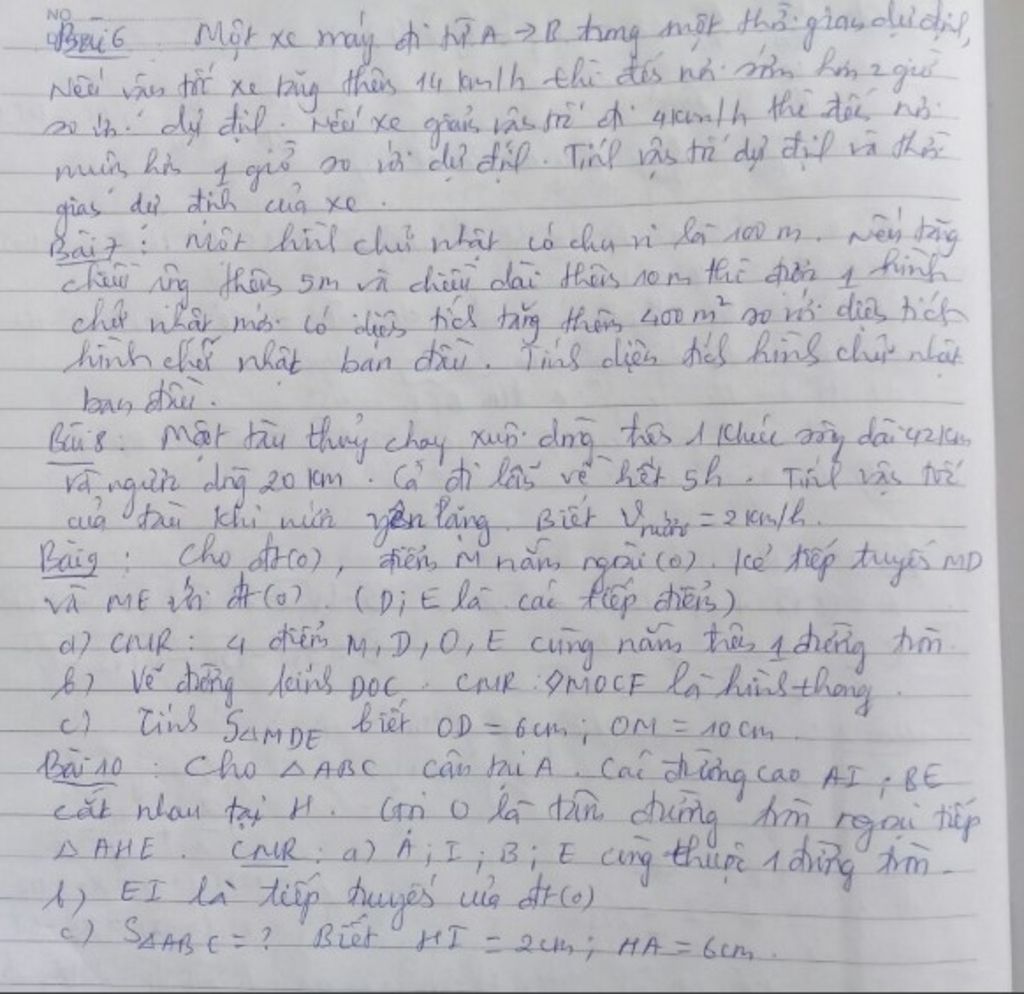 NO
Bài 6 Một xe máy đi từ A → B trong một thời gian dự định,
Nếu vận tốc xe tăng thêm 14 km/h thì đến nơi sớm hơn 2 giờ
so với dự định. Nếu xe giảm vận tốc đi 4km/h thì đến nơi
muộn hơn 1 giờ so với dự định. Tính vận tốc dự định và thời
gian dự định của xe.
Bài 7: Một hình chữ nhật có chu vi là 100 m. Nếu tăng
chiều rộng thêm 5m và chiều dài thêm 10m thì được 1 hình
chữ nhật mới có diện tích tăng thêm 400 m² so với diện tích
hình chữ nhật ban đầu. Tính diện tích hình chữ nhật
ban đầu.
Bài 8: Một tàu thuỷ chạy xuôi dòng trên 1 khúc sông dài 42 km
và ngược dòng 20 km. Cả đi lẫn về hết 5h. Tính vận tốc
của tàu khi nước yên lặng. Biết Vnước = 2 km/h.
Bài 9: Cho đt(O), điểm M nằm ngoài (O). Kẻ tiếp tuyến MD
và ME với đt(O). (D; E là các tiếp điểm)
a) CMR: 4 điểm M, D, O, E cùng nằm trên 1 đường tròn.
b) Vẽ đường kính DOC. CMR: ◊MOCE là hình thang.
c) Tính S△MDE biết OD = 6cm; OM = 10cm.
Bài 10: Cho △ABC cân tại A. Các đường cao AI; BE
cắt nhau tại H. Gọi O là tâm đường tròn ngoại tiếp
△AHE. CMR: a) A; I; B; E cùng thuộc 1 đường tròn.
b) EI là tiếp tuyến của đt(O)
c) S△ABC = ? Biết HI = 2cm; HA = 6cm.